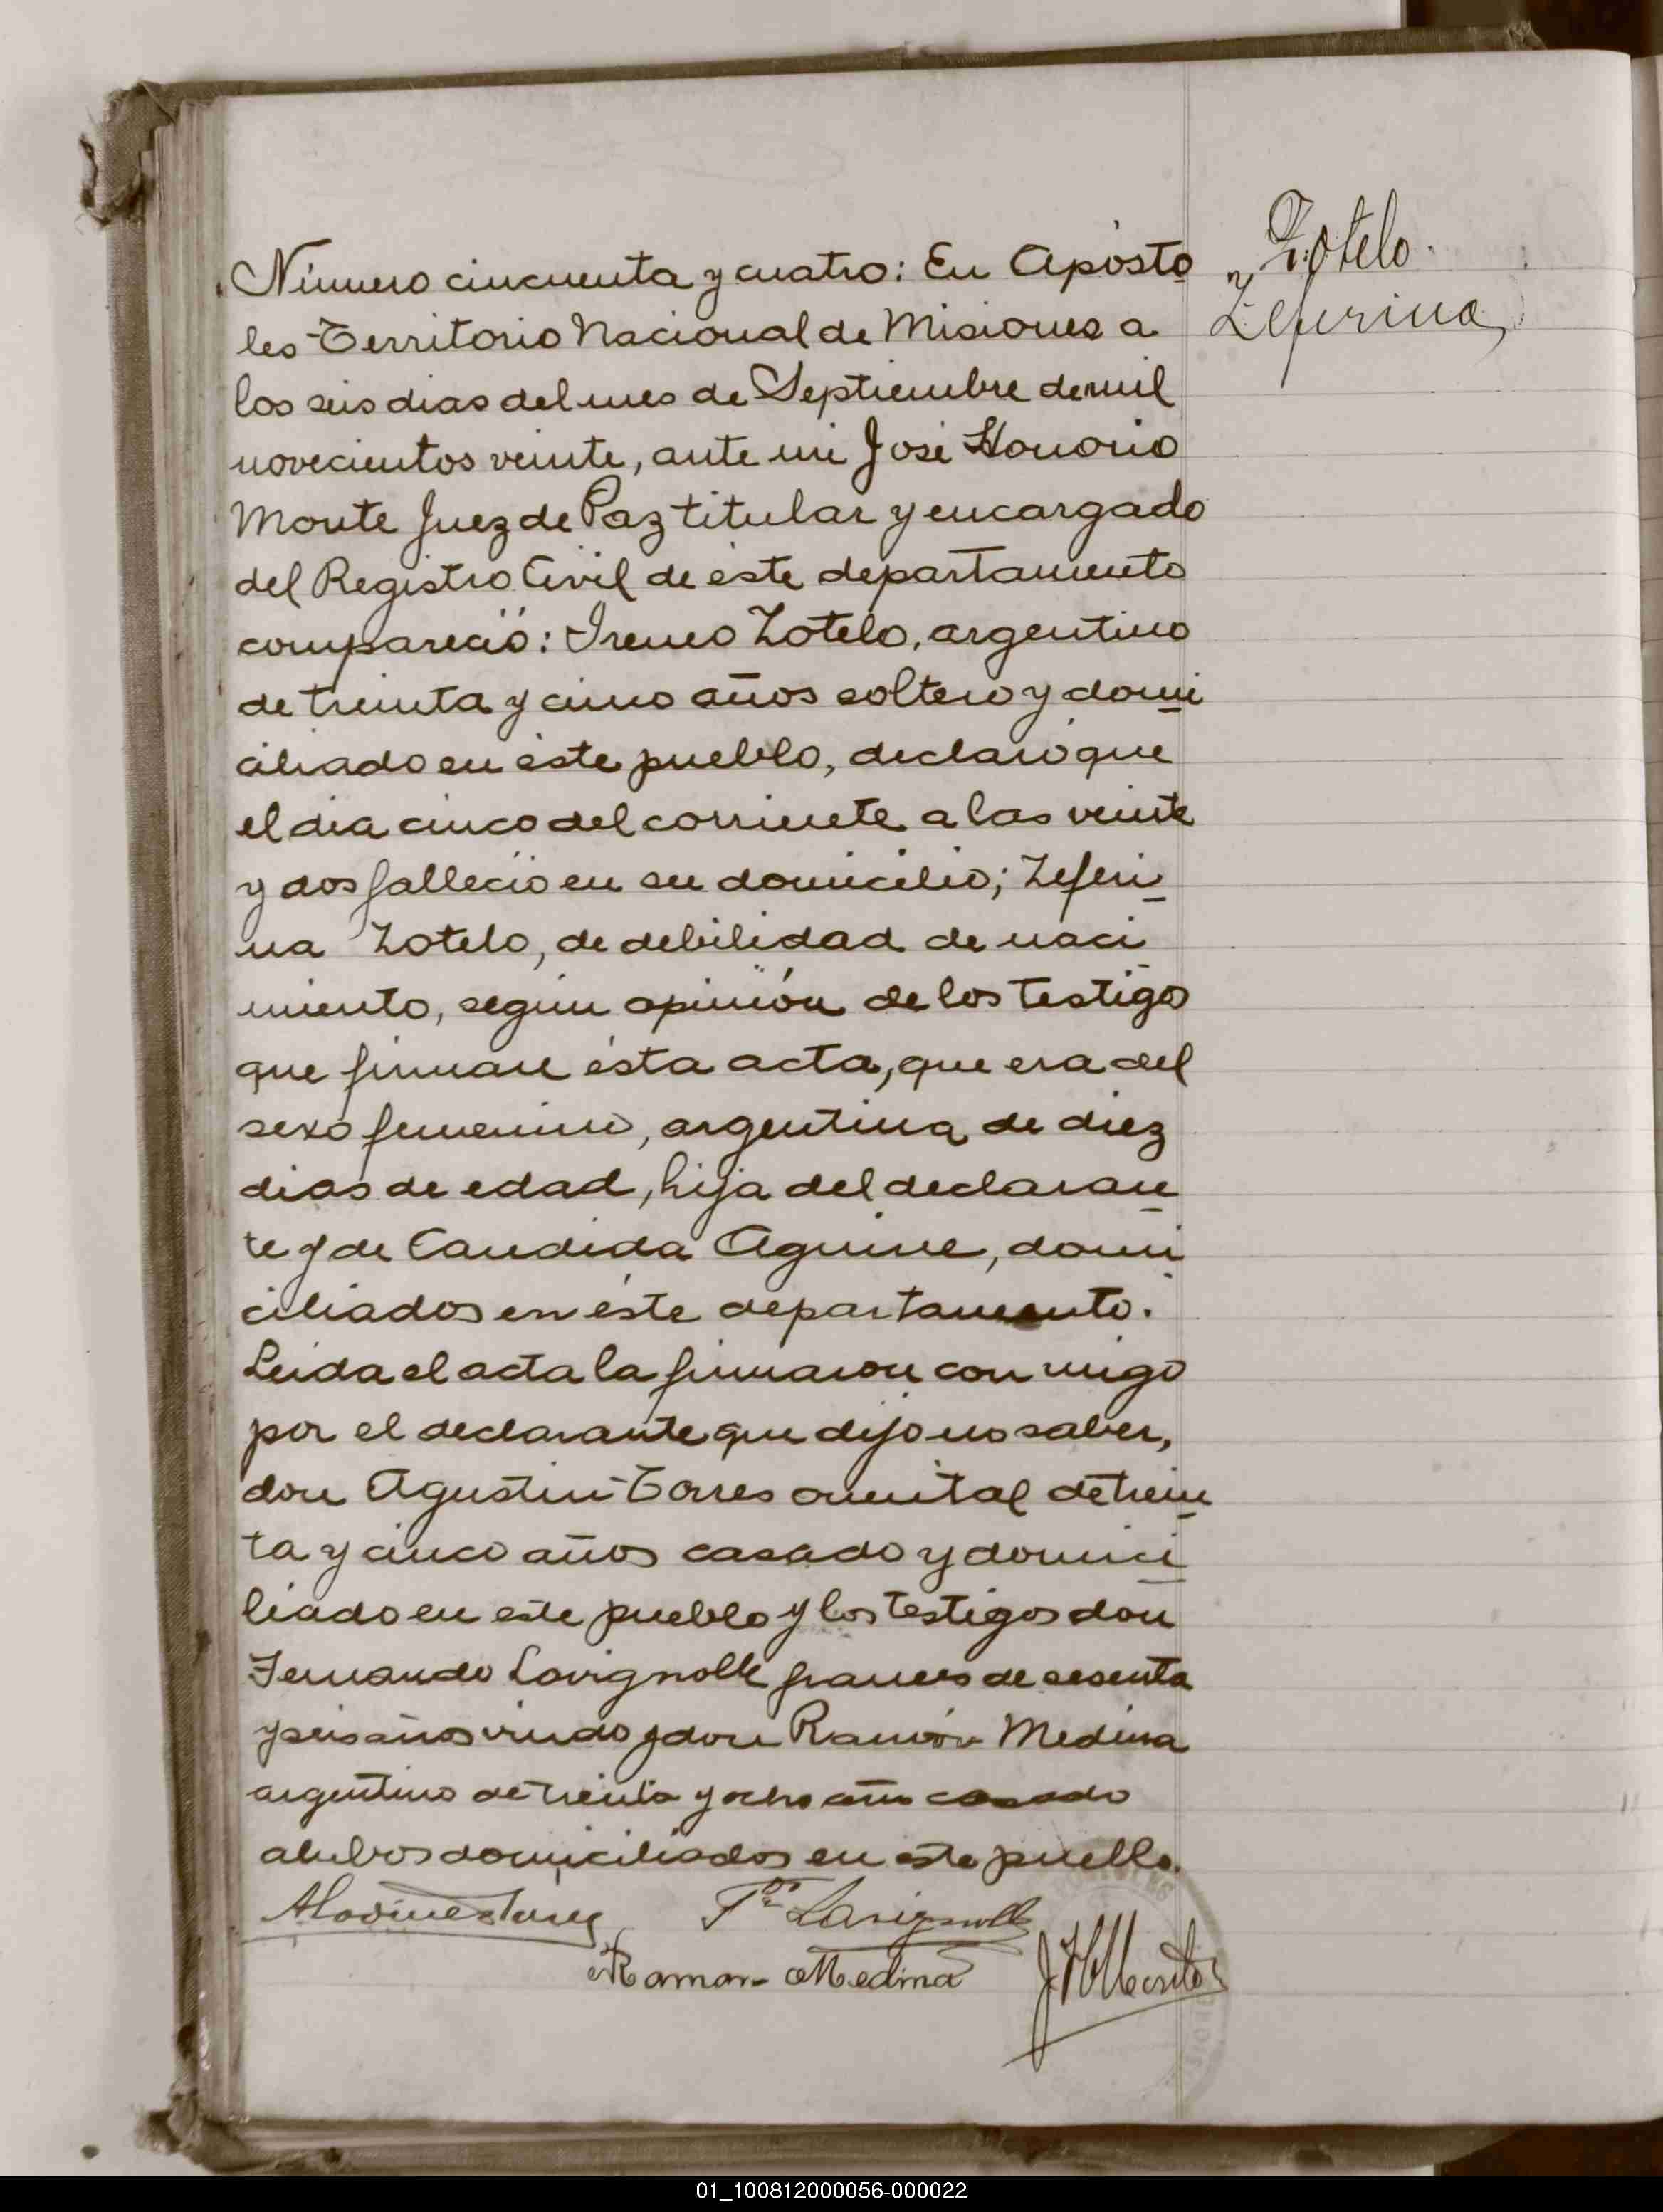 Número cincuenta y cuatro: En Apósto
les Territorio Nacional de Misiones a
los seis dias del mes de Septiembre de mil
novecientos veinte, ante mi José Honorio
Monte Juez de Paz titular y encargado
del Registro Civil de éste departamento
compareció: Ireneo Zotelo, argentino
de treinta y cinco años soltero y domi
ciliado en éste pueblo, declaró que
el dia cinco del corriente a las veinte
y dos falleció en su domicilio; Zeferi
na Zotelo, de debilidad de naci
miento, según opinión de los testigo
que firman ésta acta, que era del
sexo femenino, argentina, de diez
dias de edad, hija del declaran
te y de Candida Aguirre, domi
ciliados en éste departamento.
Leida el acta la firmaron con migo
por el declarante que dijo no saber,
don Agustin Torres oriental de trein
ta y cinco años casado y domici
liado en este pueblo y los testigos don
Fernando Lavignolle frances de sesenta
y seis años viudo y don Ramón Medina
argentino de treinta y ocho años casado
ambos domiciliados en este pueblo.
Zotelo
Zeferina
Lavignolle
Ramon Medina
JHMonte
01_100812000056-000022